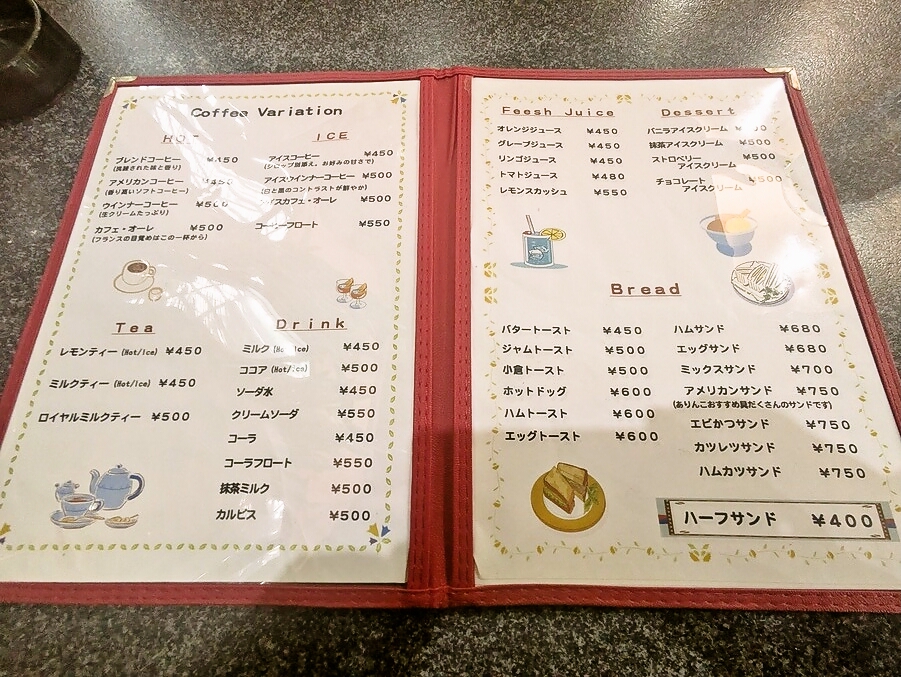 Coffea Variation
HOT
ブレンドコーヒー ¥450
(洗練された味と香り)
アメリカンコーヒー ¥450
(香り高いソフトコーヒー)
ウインナーコーヒー ¥500
(生クリームたっぷり)
カフェ・オーレ ¥500
(フランスの目覚めはこの一杯から)
ICE
アイスコーヒー ¥450
(シロップ別添え。お好みの甘さで)
アイスウインナーコーヒー ¥500
(白と黒のコントラストが鮮やか)
アイスカフェ・オーレ ¥500
コーヒーフロート ¥550
Tea
レモンティー (Hot/Ice) ¥450
ミルクティー (Hot/Ice) ¥450
ロイヤルミルクティー ¥500
Drink
ミルク (Hot/Ice) ¥450
ココア (Hot/Ice) ¥500
ソーダ水 ¥450
クリームソーダ ¥550
コーラ ¥450
コーラフロート ¥550
抹茶ミルク ¥500
カルピス ¥500
Feesh Juice
オレンジジュース ¥450
グレープジュース ¥450
リンゴジュース ¥450
トマトジュース ¥480
レモンスカッシュ ¥550
Dessert
バニラアイスクリーム
抹茶アイスクリーム ¥500
ストロベリー ¥500
アイスクリーム
チョコレート ¥500
アイスクリーム
Bread
バタートースト ¥450
ジャムトースト ¥500
小倉トースト ¥500
ホットドッグ ¥600
ハムトースト ¥600
エッグトースト ¥600
ハムサンド ¥680
エッグサンド ¥680
ミックスサンド ¥700
アメリカンサンド ¥750
(ありんこおすすめ具だくさんのサンドです)
エビかつサンド ¥750
カツレツサンド ¥750
ハムカツサンド ¥750
ハーフサンド ¥400